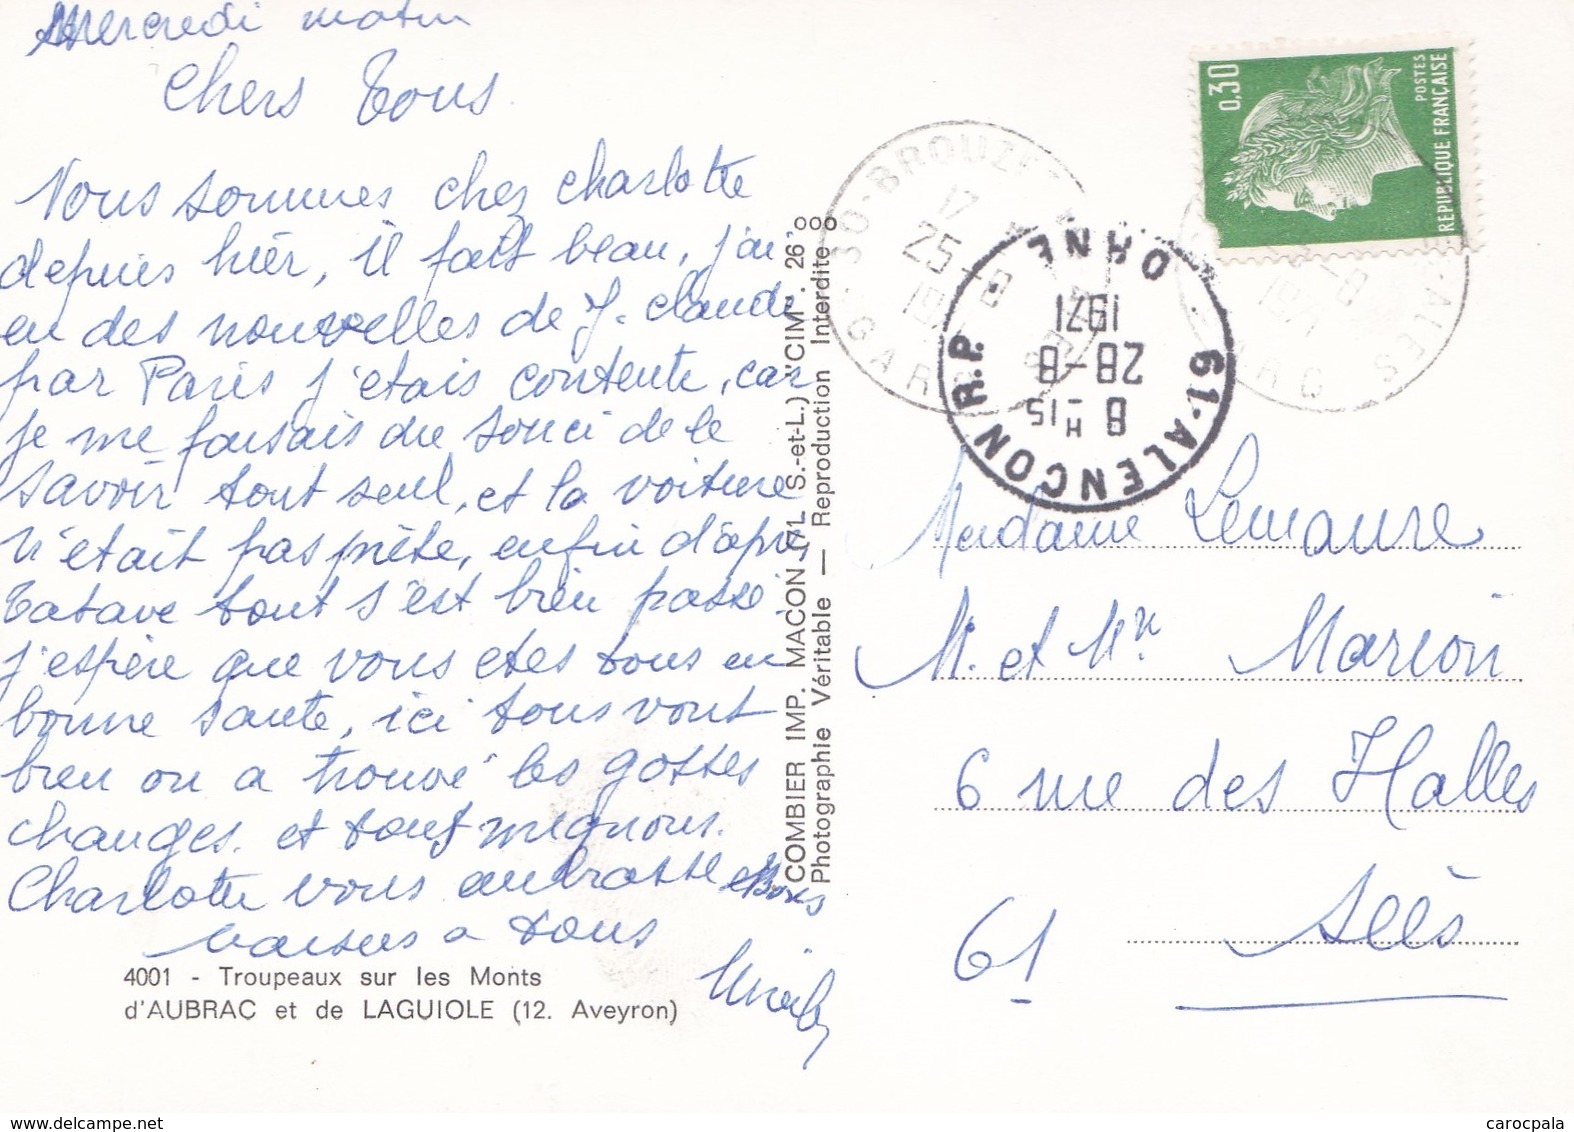 Mercredi matin
Chers Tous
Nous sommes chez charlotte
depuis hier, il fait beau, j'ai
eu des nouvelles de J. claude
par Paris j'etais contente, car
je me faisais du souci de le
savoir tout seul, et la voiture
n'était pas prête, enfin d'après
tout s'est bien passé.
j'espère que vous etes tous en
bonne santé, ici tous vont
bien on a trouvé les gosses
changes. et tous mignons.
Charlotte vous embrasse
baisers a tous
4001 - Troupeaux sur les Monts
d'AUBRAC et de LAGUIOLE (12. Aveyron)
COMBIER IMP. MACON (71. S.-et-L.) "CIM". 26'000
Photographie Véritable — Reproduction Interdite
0,30
POSTES
REPUBLIQUE FRANÇAISE
30-BROUZET
17
25-8
GARD
61-ALENCON R.P.
8 H 15
28-8
1971
ORNE
Madame Lemaure
M. et Mme Marion
6 rue des Halles
Sées
61
carocpala